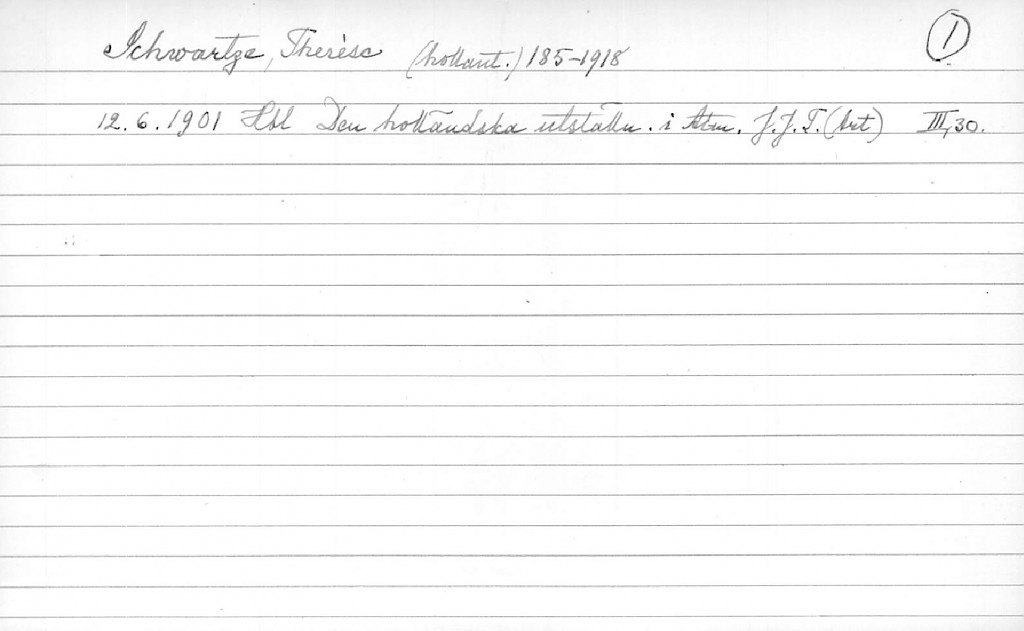 Schwartze, Therèse (hollant.) 185-1918 1
12.6.1901 Hbl Den holländska utställn. i Atm. J.J.T. (Art) III,30.